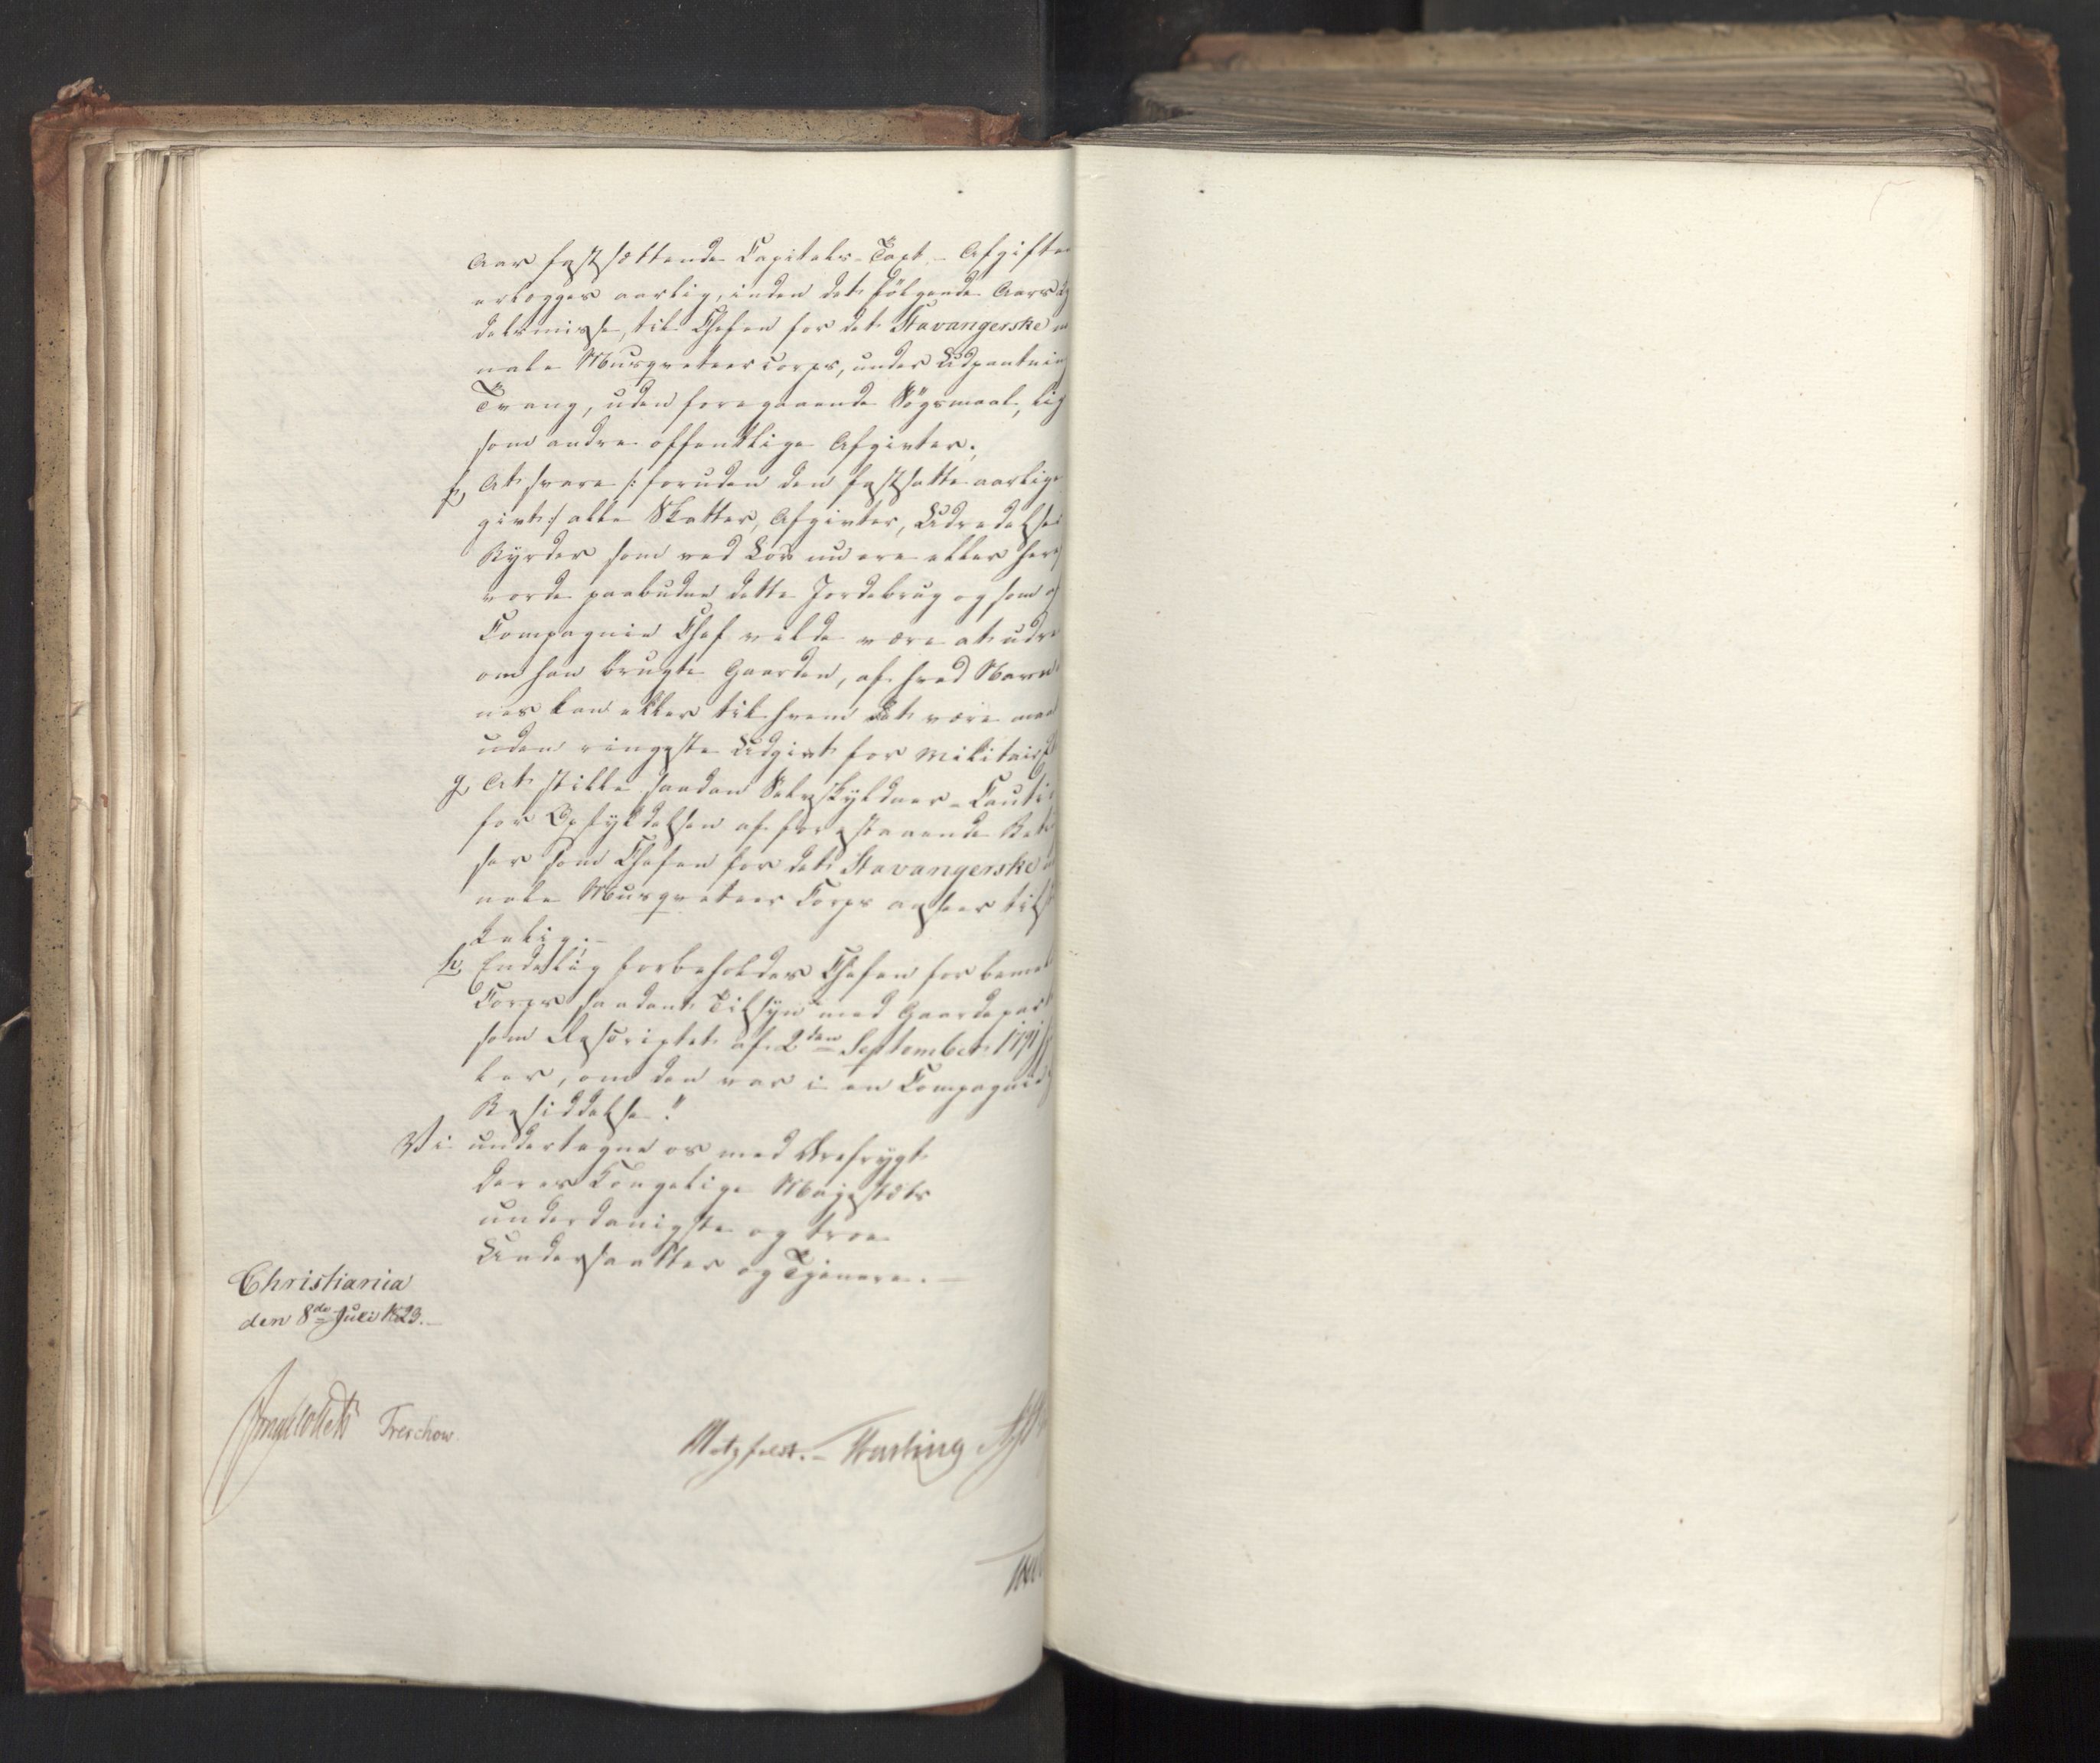 Aar fastsættende Capitels-Taxt. - Afgiften
erlægges aarlig, inden det følgende Aars
delsmisse, til Chefen for det Stavangerske
nale Musqveteercorps, under Udpantnin
Tvang, uden foregaaende Søgsmaal, lig
som andre offentlige Afgivter.
f, At svare /: foruden den fastsatte aarlige
givt :/ alle Skatter, Afgivter, Udredelser
Byrder som ved Lov nu ere eller her
vorde paabudne dette Jordebrug og som
Compagnie Chef vilde være at udre
om han brugte Gaarden, af hvad Navn
nes kan eller til hvem det være maa
uden ringeste Udgivt for Militair
g, At stille saadan Selvskyldner-Cauti
for Opfyldelsen af forestaaende Beti
ser som Chefen for det Stavangerske
nale Musqveteer Corps anseer til
kelig. -
h, Endelig forbeholdes Chefen for beme
Corps saadant Tilsyn med Gaardepar
som Rescriptet af 2den September 1791
ler, om den var i en Compagnie
Besiddelse."
Vi undertegne os med Ærefrygt
Deres Kongelige Majestæts
underdanigste og troe
Undersaatter og Tjenere. -
Christiania
den 8de Juli 1823. -
Treschow.
Motzfeldt. - Hasling